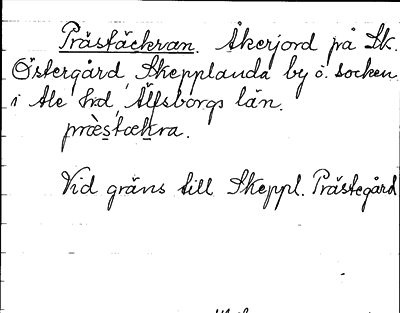 Prästäckran. Åkerjord på Sk.
Östergård, Skepplanda by o. socken
i Ale hd, Älfsborgs län.
præ̀stækra.
Vid gräns till Skeppl. Prästegård